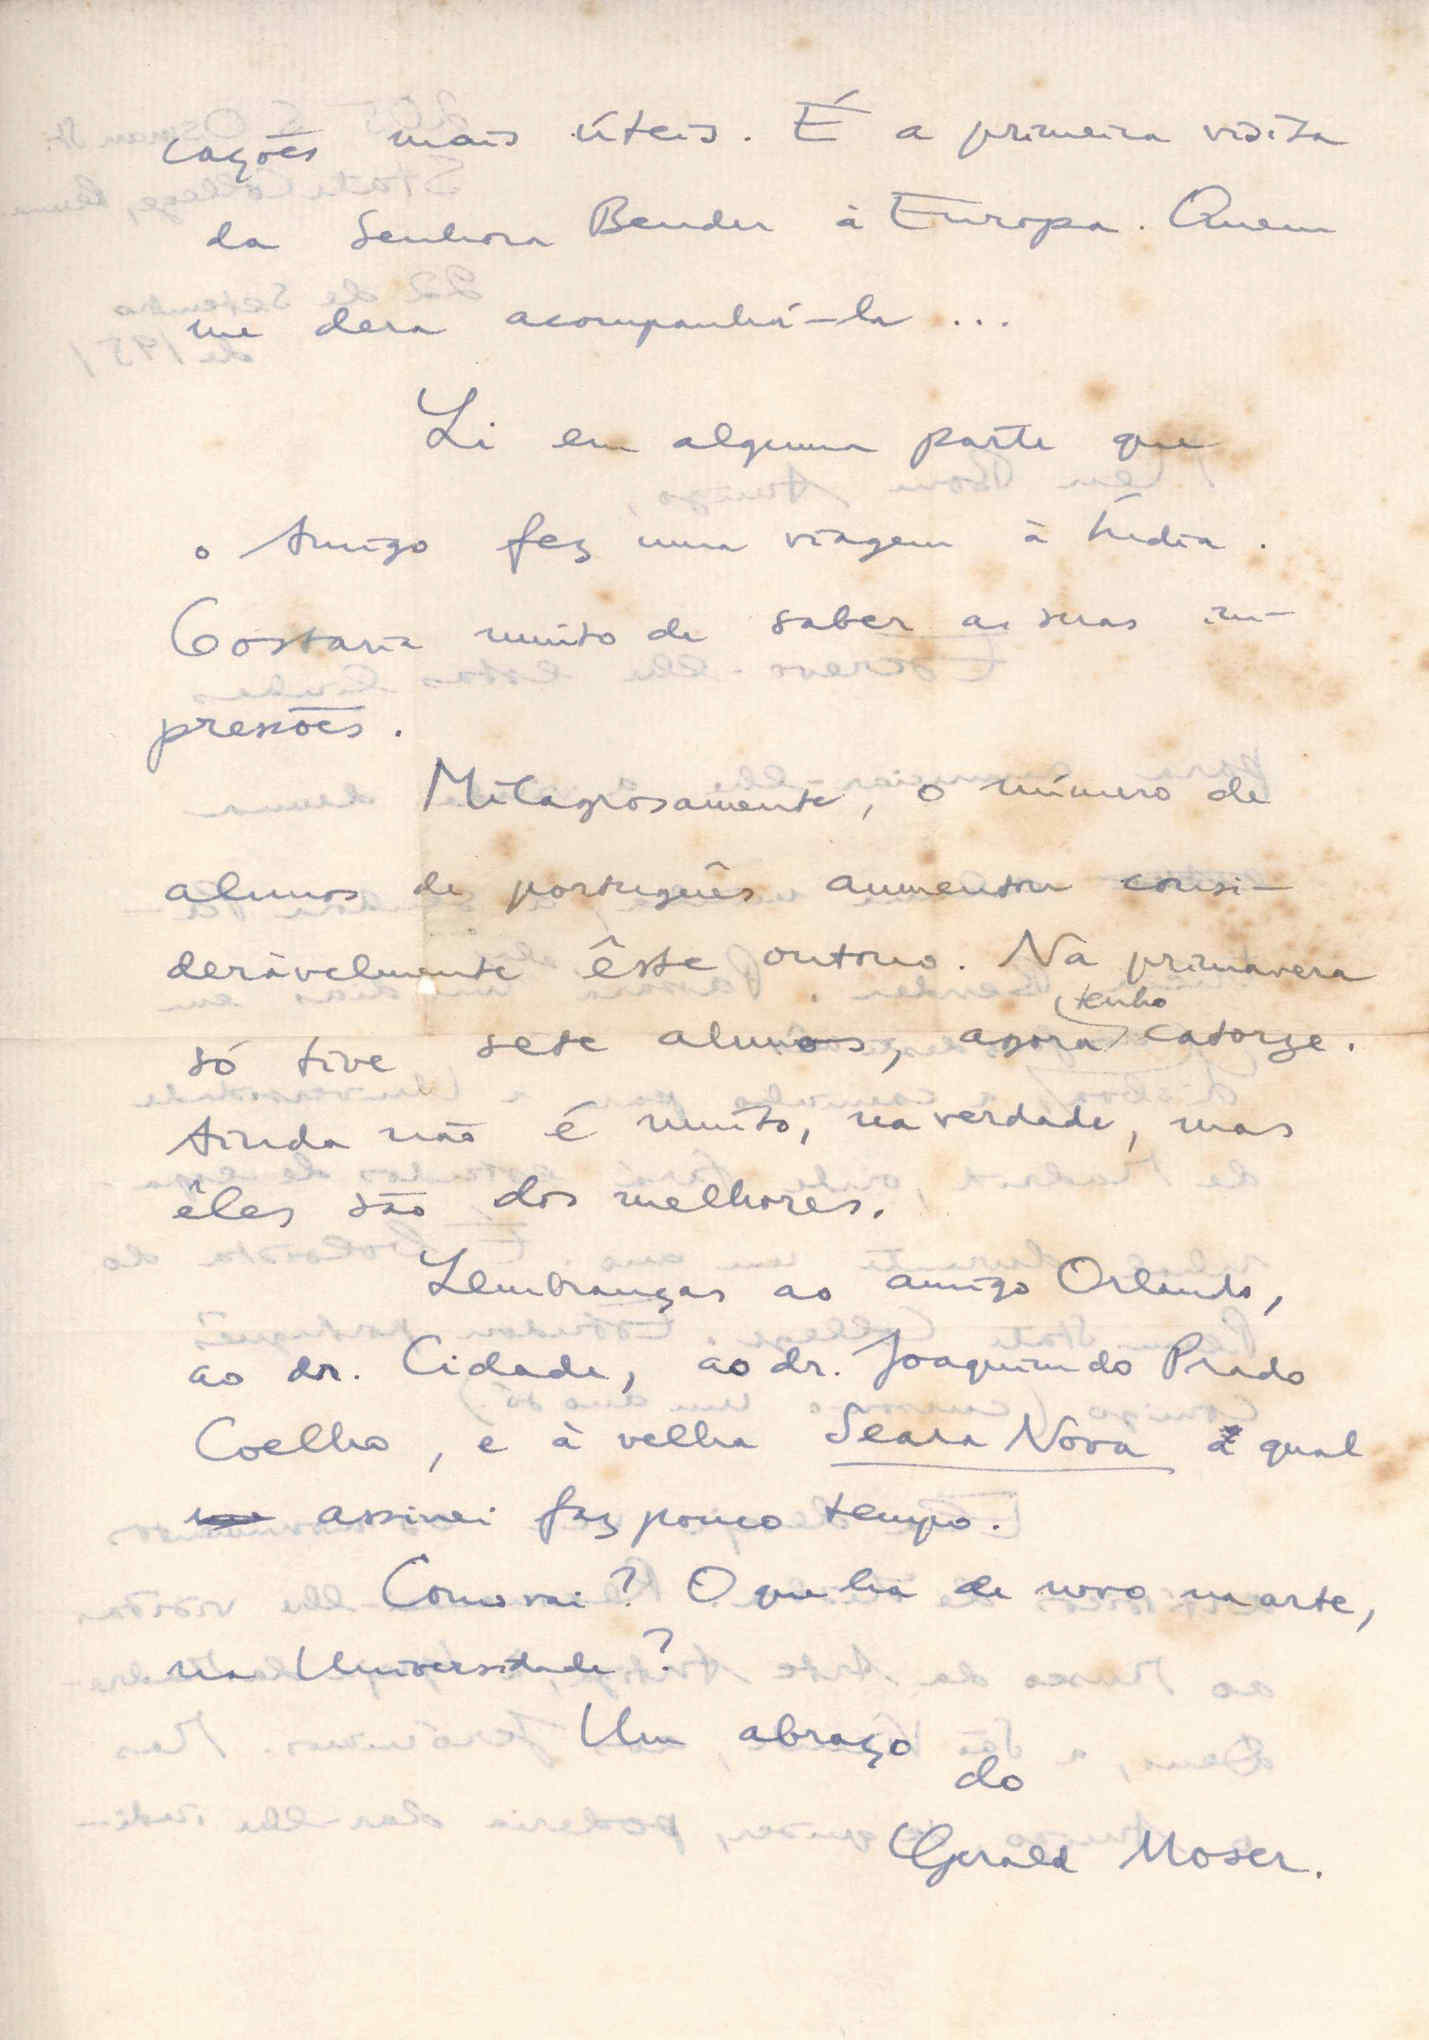 cações mais úteis. É a primeira visita
da Senhora Bender à Europa. Quem
me dera acompanhá-la ...
Li em alguma parte que
o Amigo fez uma viagem à Índia.
Gostaria muito de saber as suas im-
pressões.
Milagrosamente, o número de
alunos de português aumentou consi-
deràvelmente êste outono. Na primavera
só tive sete alunos, agora tenho catorze.
Ainda não é muito, na verdade, mas
êles são dos melhores.
Lembranças ao amigo Orlando,
ao dr. Cidade, ao dr. Joaquim do Prado
Coelho, e à velha Seara Nova a qual
assinei faz pouco tempo.
Como vai? O que há de novo na arte,
na Universidade?
Um abraço
do
Gerald Moser.